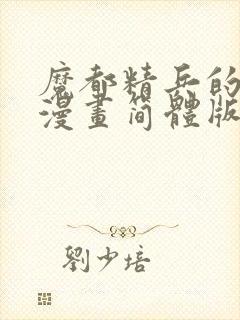 魔都精兵的
漫畫简體版
劉少培